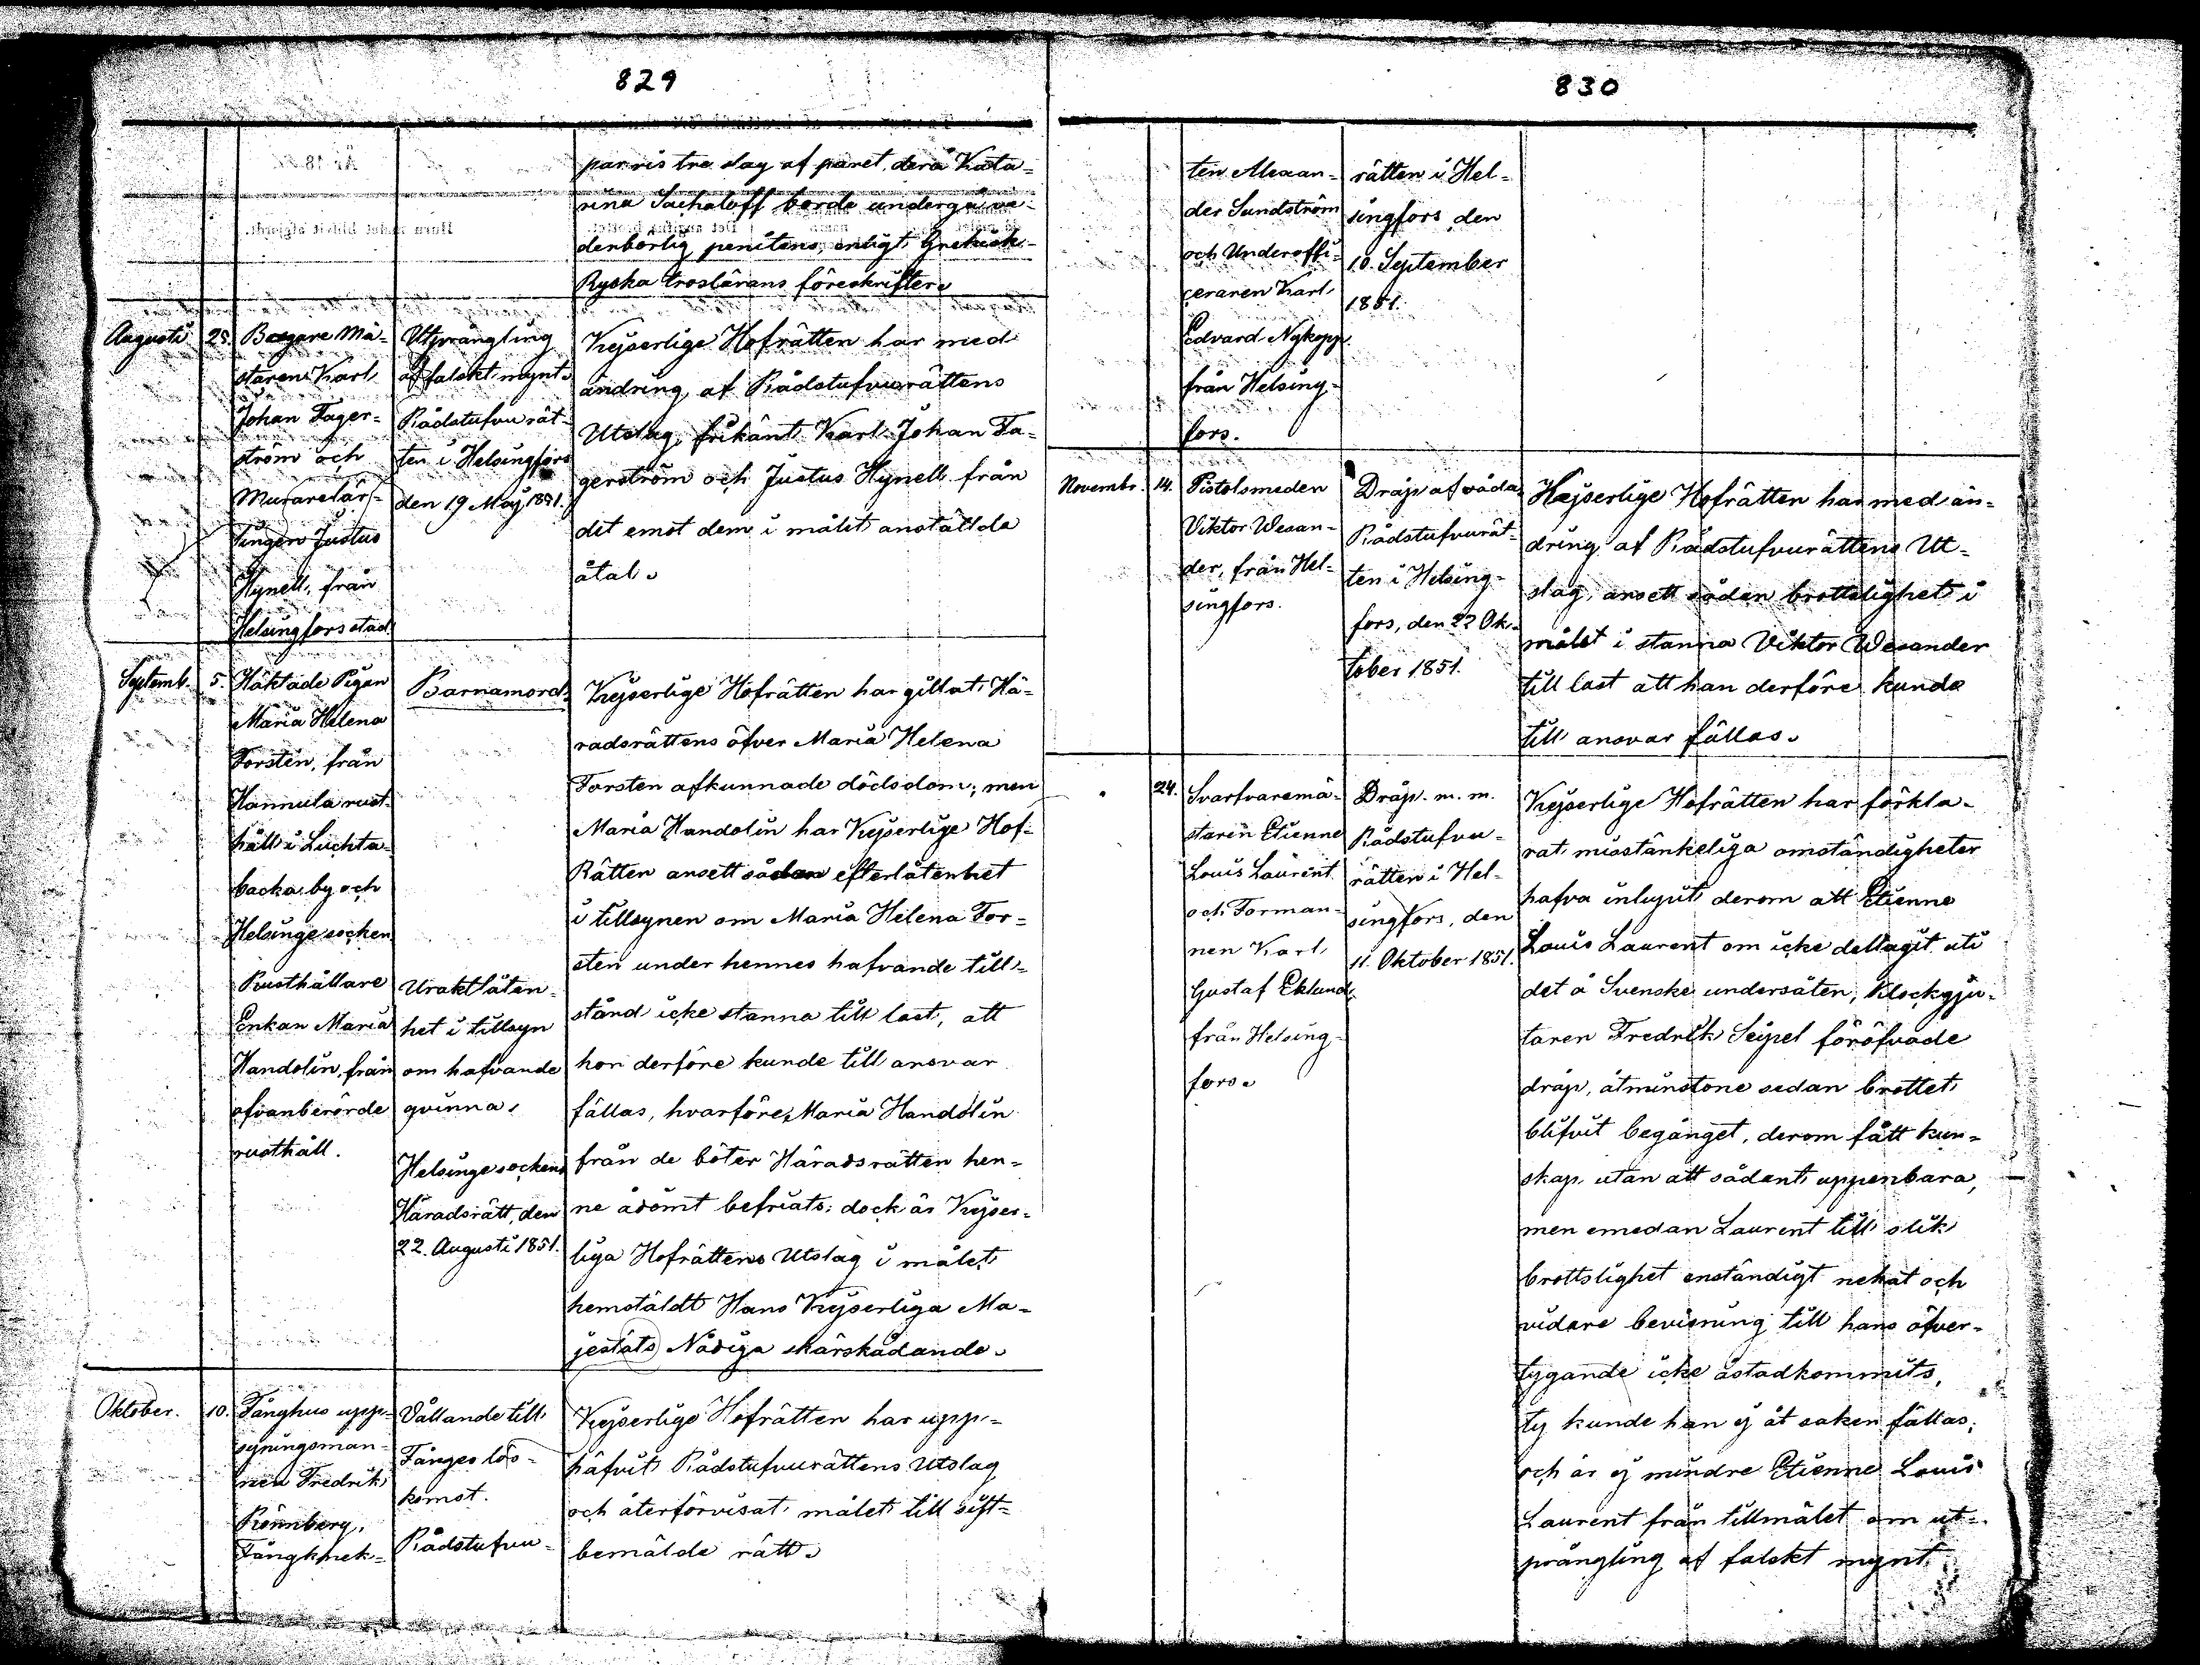 829
par ris tre slag af paret, derå Kata-
rina Sachaloff borde undergå ve-
denbörlig penitens, enligt Grekisk-
Ryska troslärans föreskrifter.
Augusti
25.
Bagare Mä-
staren Karl
Johan Fager-
ström och
Murarelär-
lingen Justus
Hynell, från
Helsingfors stad
Utprångling
af falskt mynt.
Rådstufvu rät-
ten i Helsingfors
den 19 Maj 1851.
Kejserlige Hofrätten har med
ändring af Rådstufvurättens
Utslag, frikänt Karl Johan Fa-
gerström och Justus Hynell från
det emot dem i målet anstälda
åtal.
Septemb.
5.
Häktade Pigan
Maria Helena
Forstén, från
Hannula rust-
håll i Luchta-
backa by och
Helsinge socken
Rusthållare
Enkan Maria
Handolin, från
ofvanberörde
rusthåll.
Barnamord.
Uraktlåten-
het i tillsyn
om hafvande
qvinna.
Helsinge sockens
Häradsrätt, den
22. Augusti 1851.
Kejserlige Hofrätten har gillat Hä-
radsrättens öfver Maria Helena
Forsten afkunnade dödsdom; men
Maria Handolin har Kejserlige Hof-
Rätten ansett sådan efterlåtenhet
i tillsynen om Maria Helena For-
sten under hennes hafvande till-
stånd icke stanna till last, att
hon derföre kunde till ansvar
fällas, hvarföre Maria Handolin
från de böter Häradsrätten hen-
ne ådömt befriats; dock är Kejser-
liga Hofrättens Utslag i målet
hemstäldt Hans Kejserliga Ma-
jestäts Nådiga skärskådande.
Oktober.
10.
Fånghus upp-
syningsman-
nen Fredrik
Rönnberg,
Fångknek-
Vållande till
Fånges lös-
komst.
Rådstufvu-
Kejserlige Hofrätten har upp-
häfvit Rådstufvurättens Utslag
och återförvisat målet till sist-
bemälde rätt.
830
ten Alexan-
der Sundström
och Underoffi-
ceraren Karl
Edvard Nykopp
från Helsing-
fors.
rätten i Hel-
singfors, den
10. September
1851.
Novembr.
14.
Pistolsmeden
Viktor Wesan-
der, från Hel-
singfors.
Dråp af våda
Rådstufvurät-
ten i Helsing-
fors, den 22 Ok-
tober 1851.
Kejserlige Hofrätten har med än-
dring af Rådstufvurättens Ut-
slag, ansett sådan brottslighet i
målet i stanna Viktor Wesander
till last att han derföre kunde
till ansvar fällas.
24.
Svarfvaremä-
staren Etienne
Louis Laurent
och Forman-
nen Karl
Gustaf Eklund,
från Helsing-
fors.
Dråp. m. m.
Rådstufvu-
rätten i Hel-
singfors, den
11. Oktober 1851.
Kejserlige Hofrätten har förkla-
rat misstänkeliga omständigheter
hafva inlupit derom att Etienne
Louis Laurent om icke deltagit uti
det å Svenske undersåten, Klockgju-
taren Fredrik Seipel föröfvade
dråp, åtminstone sedan brottet
blifvit begånget, derom fått kun-
skap utan att sådant uppenbara,
men emedan Laurent till slik
brottslighet enständigt nekat och
vidare bevisning till hans öfver-
tygande icke åstadkommits,
ty kunde han ej åt saken fällas;
och är ej mindre Etienne Louis
Laurent från tillmälet om ut-
prångling af falskt mynt